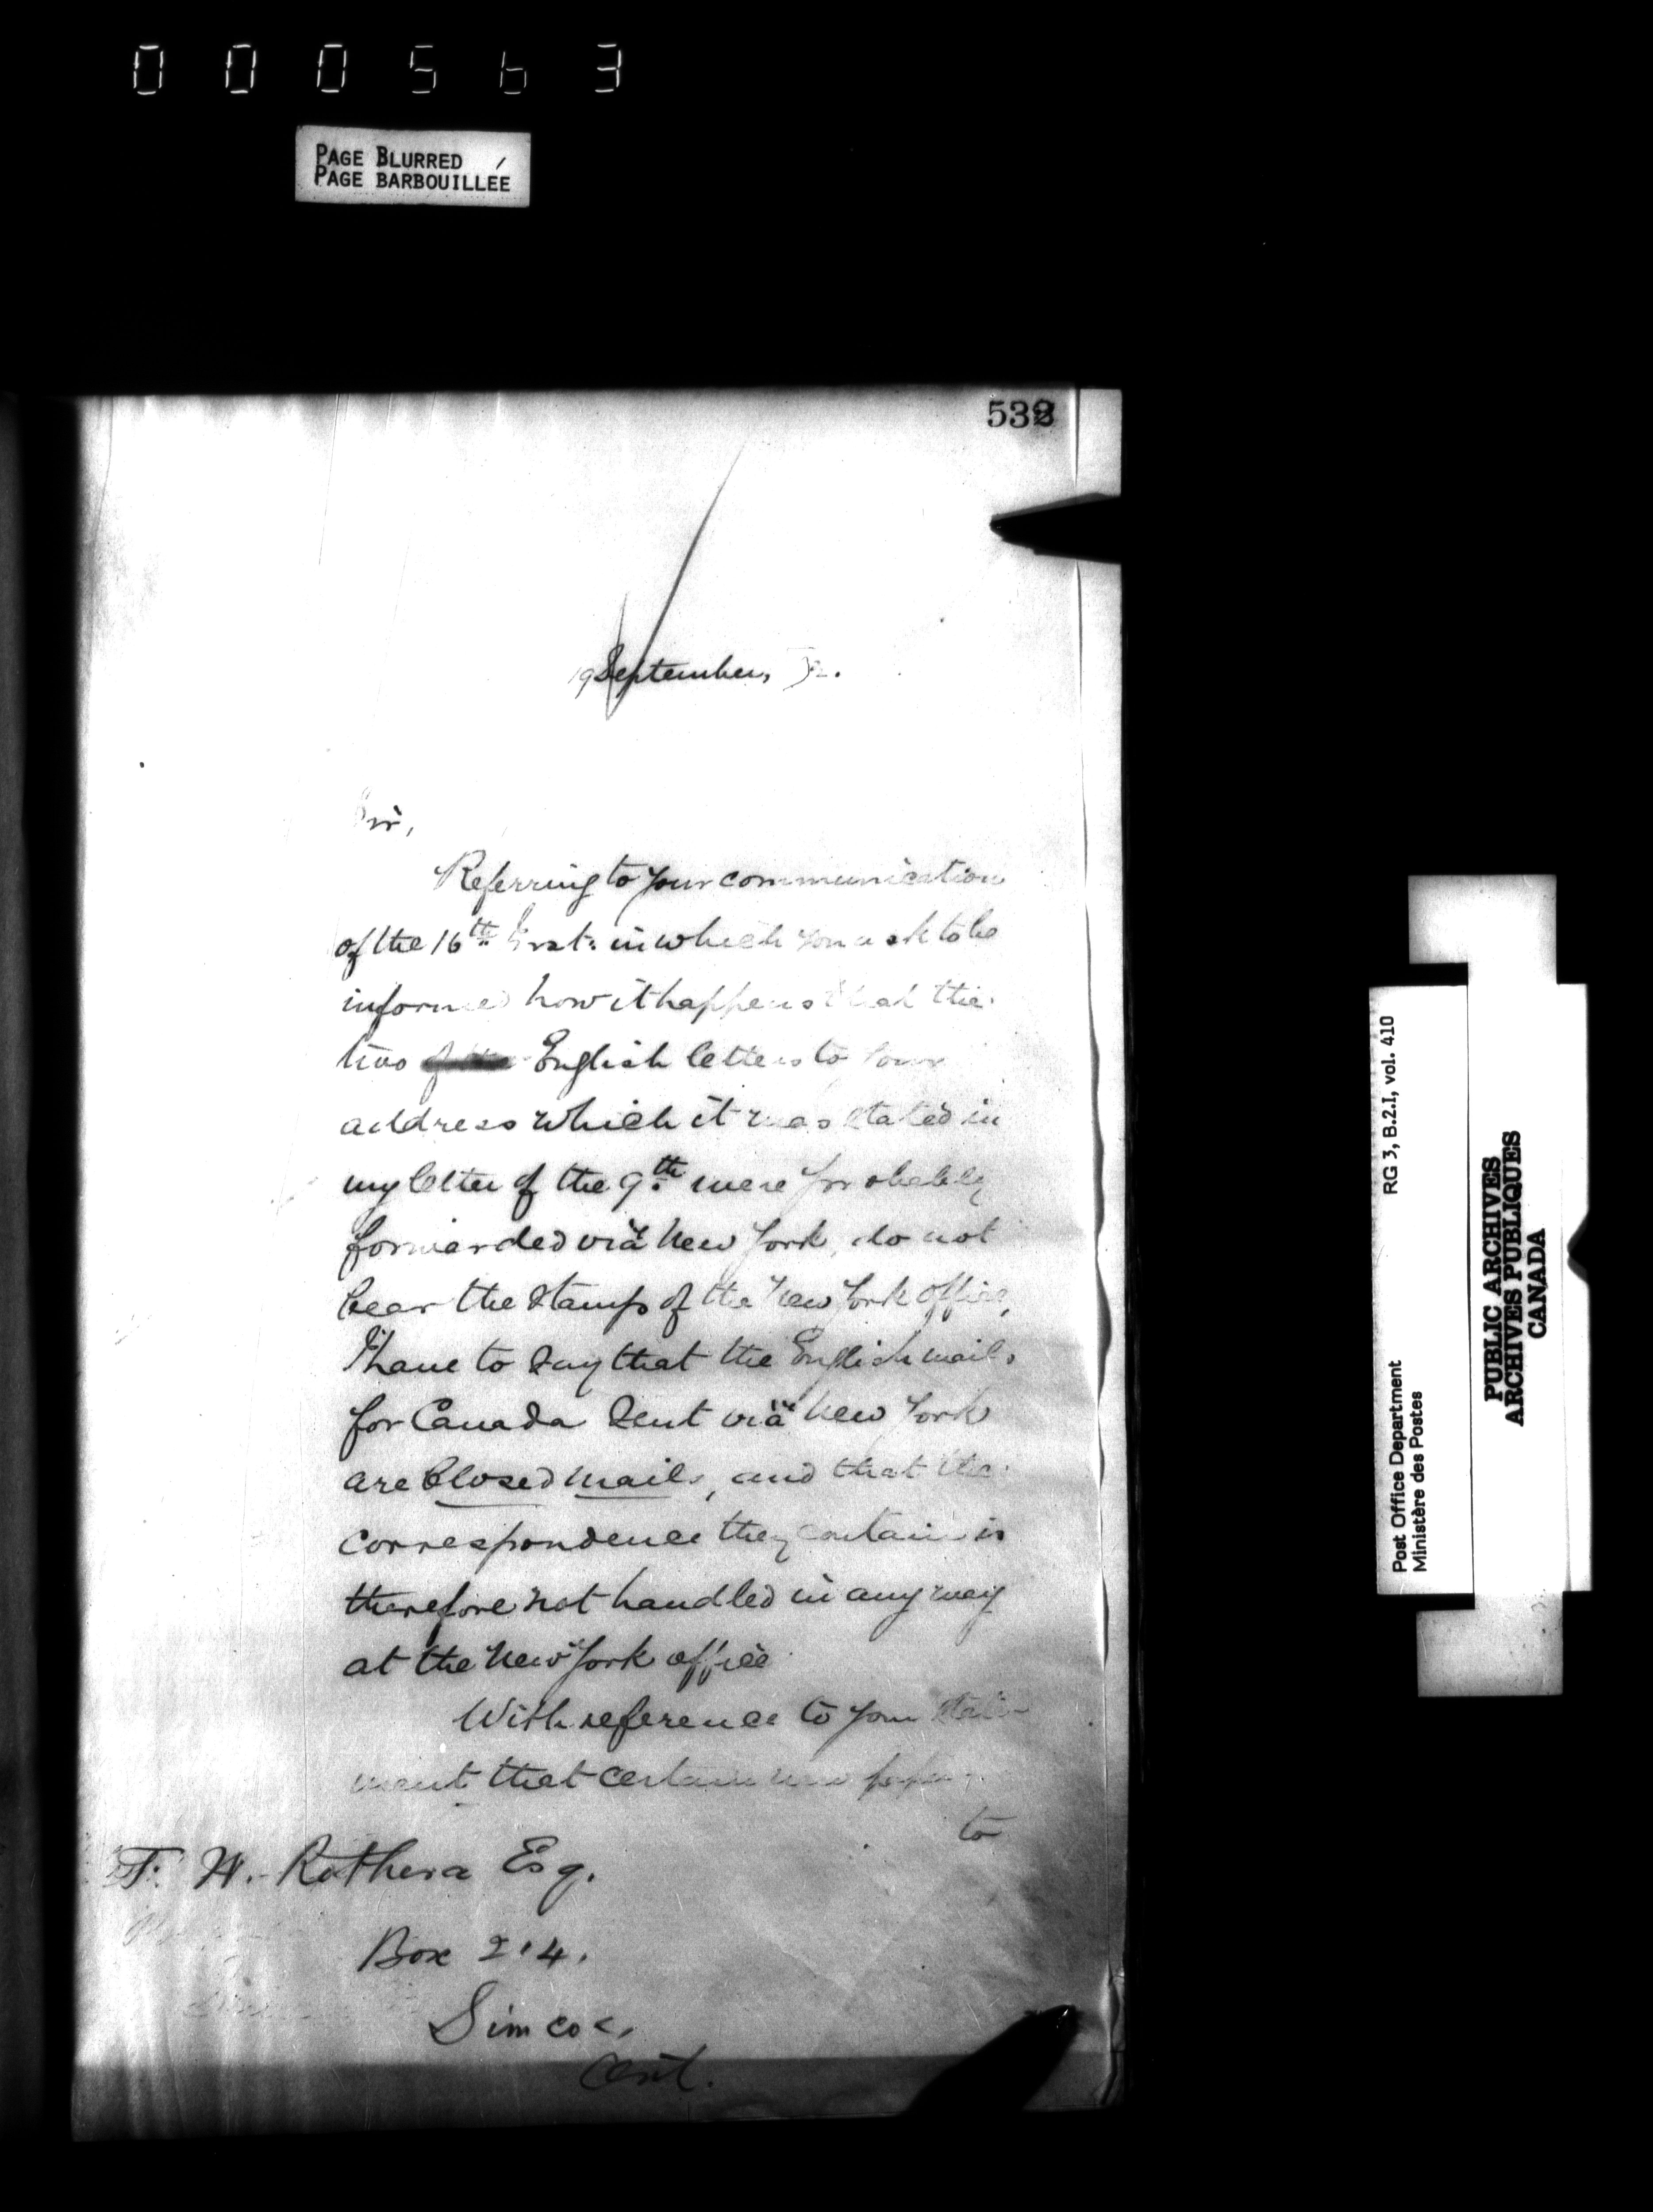 000563
PAGE BLURRED
PAGE BARBOUILLÉE
19 September,
Sir,
Referring to your communication
of the 16th Inst: in which you ask to be
informed how it happens that the
two English letters to your
address which it was stated in
my letter of the 9th were probably
forwarded viâ New York, do not
bear the stamp of the New York Office,
I have to say that the English mails
for Canada sent viâ New York
are Closed mails, and that the
correspondence they contain is
therefore not handled in any way
at the New York office
With reference to your state-
ment that certain newspapers
to
F. W. Rothera Esq.
Box 214.
Simcoe,
Ont.
RG 3, B.2.I, vol. 410
Post Office Department
Ministère des Postes
PUBLIC ARCHIVES
ARCHIVES PUBLIQUES
CANADA